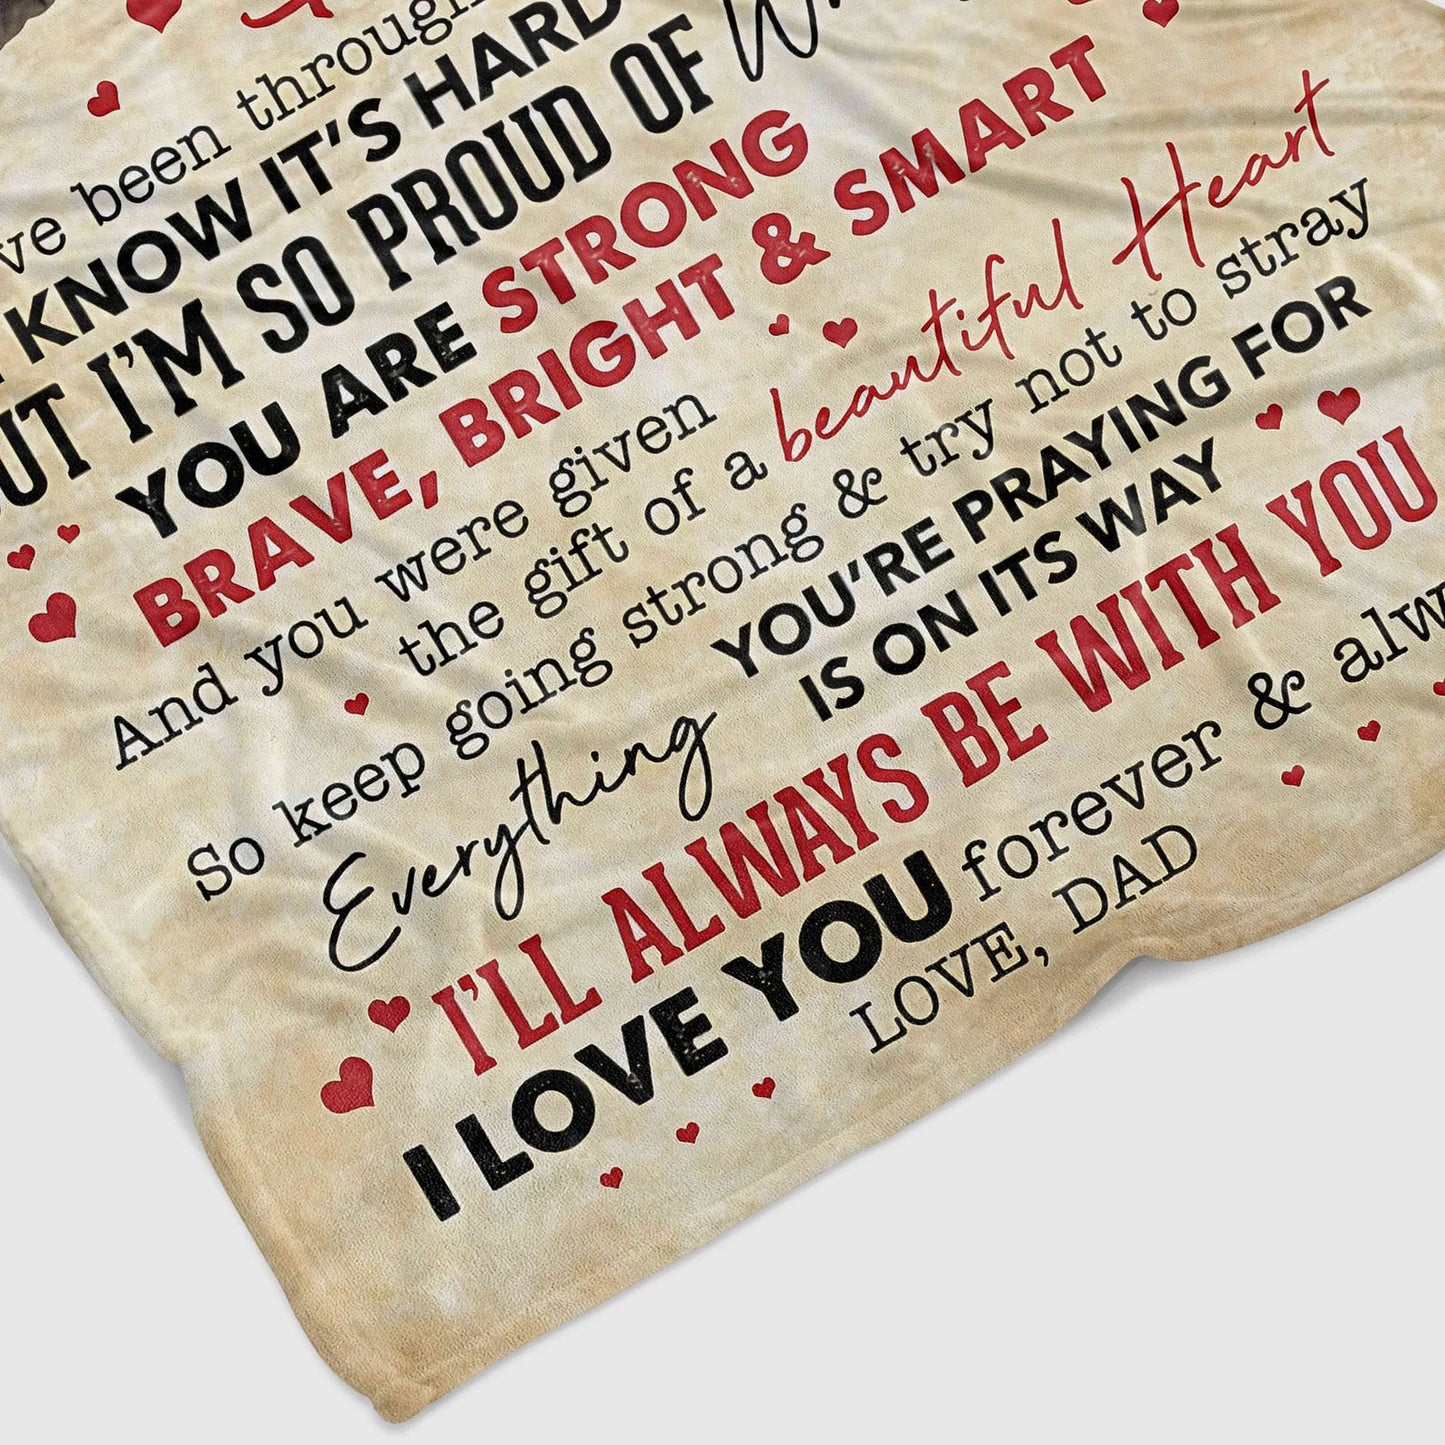 been through
KNOW IT'S HARD
I'M SO PROUD OF
YOU ARE STRONG
BRAVE, BRIGHT & SMART
And you were given
the gift of a beautiful Heart
So keep going strong & try not to stray
Everything YOU'RE PRAYING FOR
IS ON ITS WAY
I'LL ALWAYS BE WITH YOU
I LOVE YOU forever &
LOVE, DAD